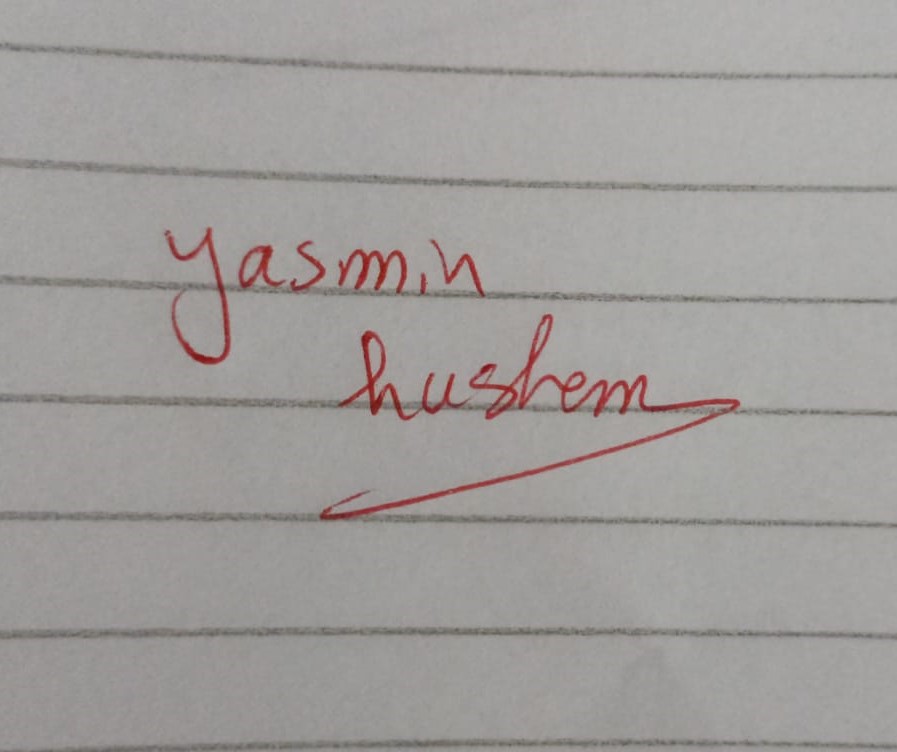 yasmin
hushem